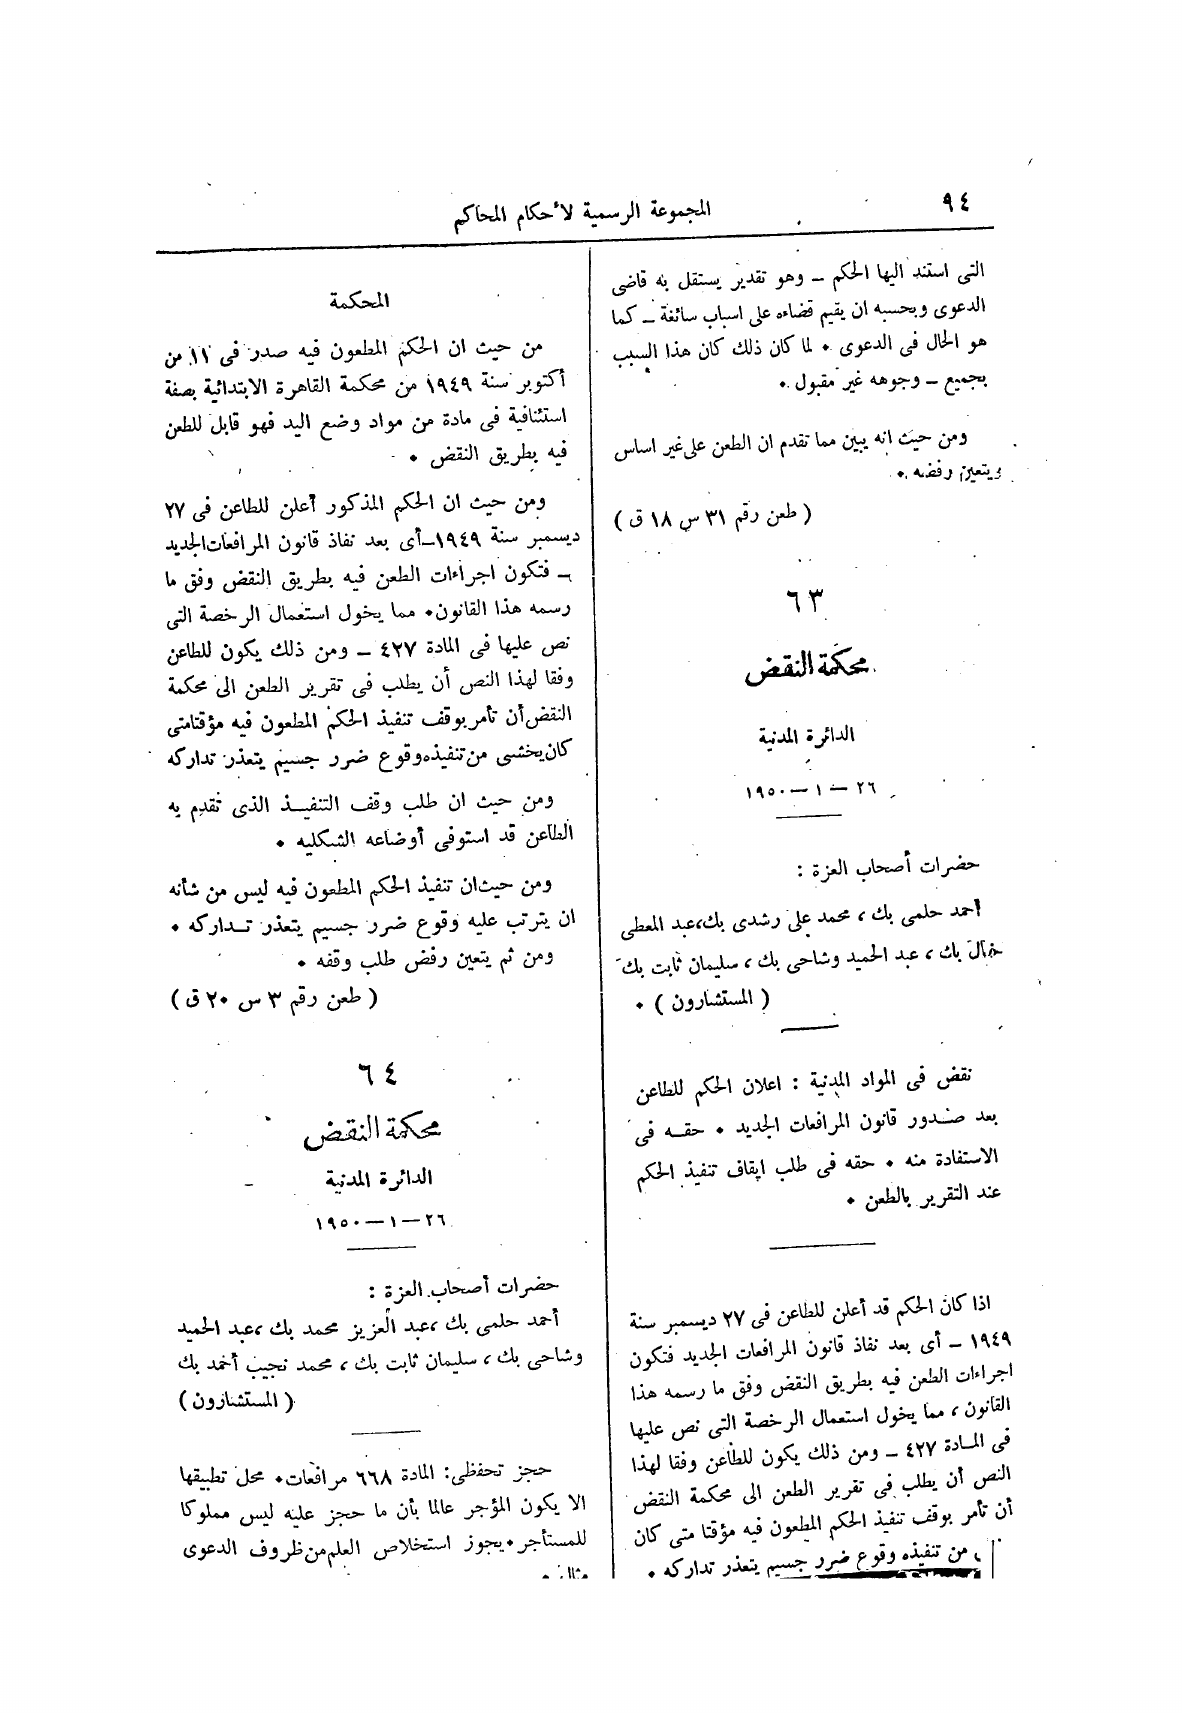 ٩٤
المجموعة الرسمية لأحكام المحاكم
التى استند اليها الحكم – وهو تقدير يستقل به قاضى
الدعوى وبحسبه ان يقيم قضاءه على اسباب سائغة – كما
هو الحال فى الدعوى • لما كان ذلك كان هذا السبب
بجميع – وجوهه غير مقبول •
ومن حيث انه يبين مما تقدم ان الطعن على غير اساس
ويتعين رفضه •
( طعن رقم ٣١ س ١٨ ق )
٦٣
محكمة النقض
الدائرة المدنية
٢٦ – ١ – ١٩٥٠
حضرات أصحاب العزة :
أحمد حلمى بك ، محمد على رشدى بك، عبد المعطى
خيال بك ، عبد الحميد وشاحى بك ، سليمان ثابت بك
( المستشارون ) •
نقض فى المواد المدنية : اعلان الحكم للطاعن
بعد صدور قانون المرافعات الجديد • حقه فى
الاستفادة منه • حقه فى طلب ايقاف تنفيذ الحكم
عند التقرير بالطعن •
اذا كان الحكم قد أعلن للطاعن فى ٢٧ ديسمبر سنة
١٩٤٩ – أى بعد نفاذ قانون المرافعات الجديد فتكون
اجراءات الطعن فيه بطريق النقض وفق ما رسمه هذا
القانون ، مما يخول استعمال الرخصة التى نص عليها
فى المادة ٤٢٧ – ومن ذلك يكون للطاعن وفقا لهذا
النص أن يطلب فى تقرير الطعن الى محكمة النقض
أن تأمر بوقف تنفيذ الحكم المطعون فيه مؤقتا متى كان
من تنفيذه وقوع ضرر جسيم يتعذر تداركه •
المحكمة
من حيث ان الحكم المطعون فيه صدر فى ١١ من
أكتوبر سنة ١٩٤٩ من محكمة القاهرة الابتدائية بصفة
استئنافية فى مادة من مواد وضع اليد فهو قابل للطعن
فيه بطريق النقض •
ومن حيث ان الحكم المذكور أعلن للطاعن فى ٢٧
ديسمبر سنة ١٩٤٩–أى بعد نفاذ قانون المرافعات الجديد
– فتكون اجراءات الطعن فيه بطريق النقض وفق ما
رسمه هذا القانون• مما يخول استعمال الرخصة التى
نص عليها فى المادة ٤٢٧ – ومن ذلك يكون للطاعن
وفقا لهذا النص أن يطلب فى تقرير الطعن الى محكمة
النقض أن تأمر بوقف تنفيذ الحكم المطعون فيه مؤقتا متى
كان يخشى من تنفيذه وقوع ضرر جسيم يتعذر تداركه
ومن حيث ان طلب وقف التنفيذ الذى تقدم به
الطاعن قد استوفى أوضاعه الشكليه •
ومن حيث ان تنفيذ الحكم المطعون فيه ليس من شأنه
ان يترتب عليه وقوع ضرر جسيم يتعذر تداركه •
ومن ثم يتعين رفض طلب وقفه •
( طعن رقم ٣ س ٢٠ ق )
٦٤
محكمة النقض
الدائرة المدنية
٢٦ – ١ – ١٩٥٠
حضرات أصحاب العزة :
أحمد حلمى بك ، عبد العزيز محمد بك ، عبد الحميد
وشاحى بك ، سليمان ثابت بك ، محمد نجيب أحمد بك
( المستشارون )
حجز تحفظى: المادة ٦٦٨ مرافعات• محل تطبيقها
الا يكون المؤجر عالما بأن ما حجز عليه ليس مملوكا
للمستأجر• يجوز استخلاص العلم من ظروف الدعوى
مثال •